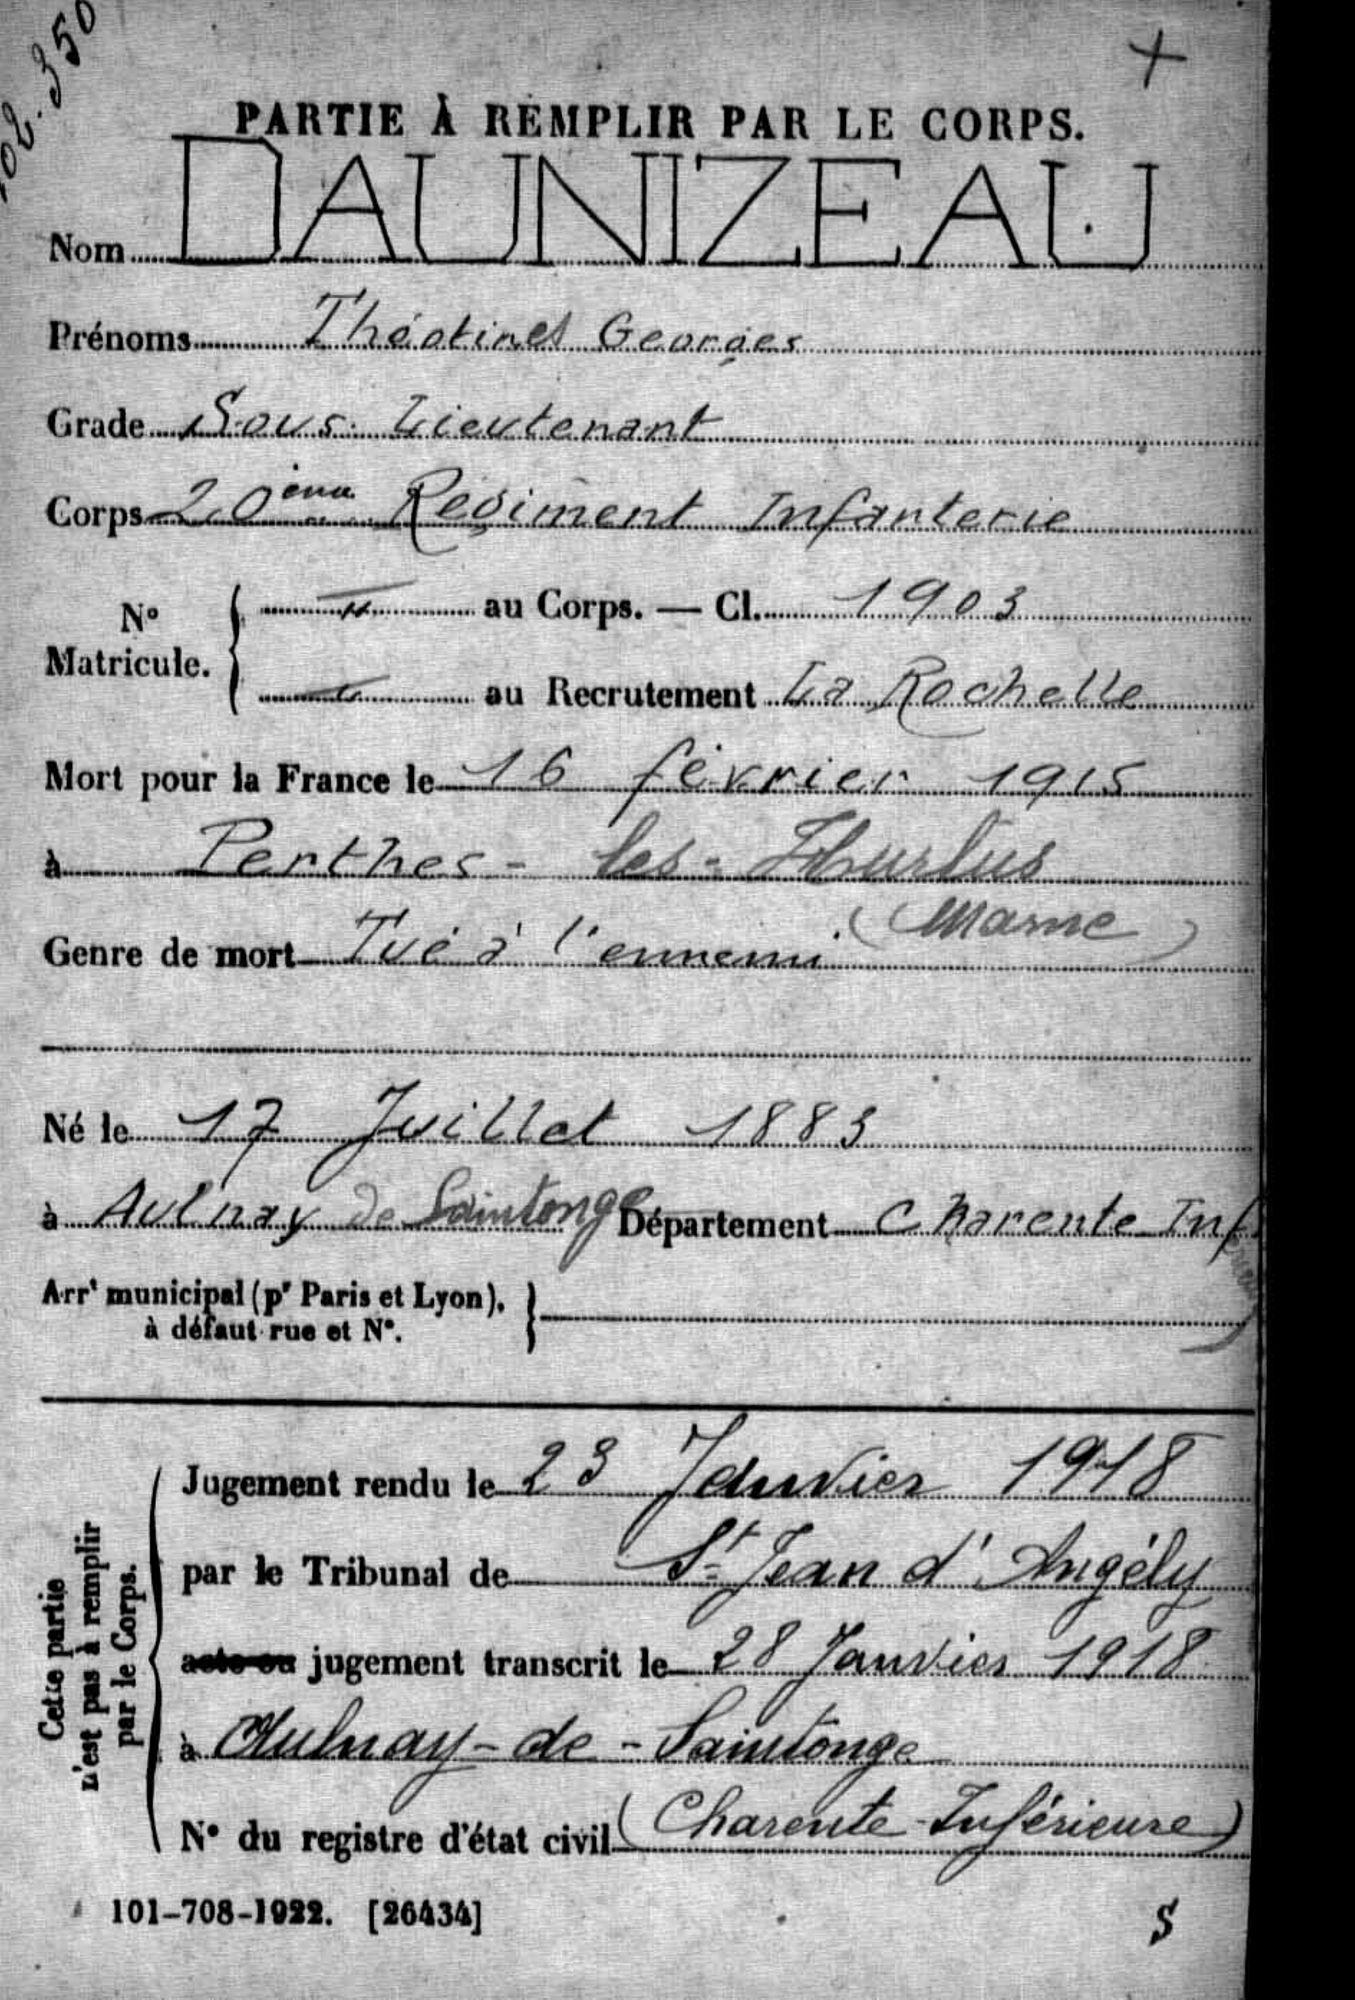 +
PARTIE À REMPLIR PAR LE CORPS.
Nom DAUNIZEAU
Prénoms Georges
Grade Sous-Lieutenant
Corps 20ème Régiment Infanterie
N° Matricule.
" au Corps. — Cl. 1903
" au Recrutement La Rochelle
Mort pour la France le 16 février 1915
à Perthes-les-Hurlus
(Marne)
Genre de mort Tué à l'ennemi
Né le 17 Juillet 1883
à Aulnay de Saintonge Département Charente Inférieure
Arrt municipal (pr Paris et Lyon),
à défaut rue et N°.
Cette partie
n'est pas à remplir
par le Corps.
Jugement rendu le 23 Janvier 1918
par le Tribunal de St Jean d'Angély
acte ou jugement transcrit le 28 Janvier 1918
à Aulnay-de-Saintonge
N° du registre d'état civil (Charente-Inférieure)
101-708-1922. [26434]
S